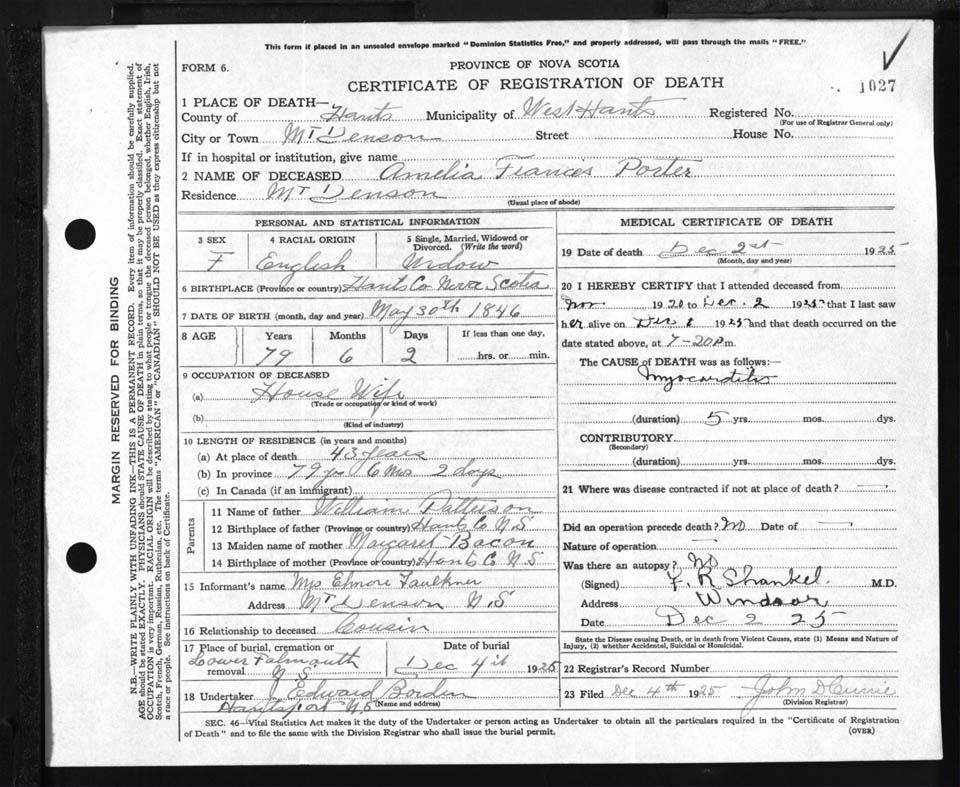 This form if placed in an unsealed envelope marked "Dominion Statistics Free," and properly addressed, will pass through the mails "FREE."
FORM 6.
PROVINCE OF NOVA SCOTIA
CERTIFICATE OF REGISTRATION OF DEATH
1027
1 PLACE OF DEATH—
County of Hants Municipality of West Hants Registered No.
(For use of Registrar General only)
City or Town Mt Denson Street House No.
If in hospital or institution, give name
2 NAME OF DECEASED Amelia Francis Porter
Residence Mt Denson
(Usual place of abode)
PERSONAL AND STATISTICAL INFORMATION
3 SEX 4 RACIAL ORIGIN 5 Single, Married, Widowed or Divorced. (Write the word)
F English Widow
6 BIRTHPLACE (Province or country) Hants Co Nova Scotia
7 DATE OF BIRTH (month, day and year) May 30th 1846
8 AGE Years Months Days If less than one day,
79 6 2 hrs. or min.
9 OCCUPATION OF DECEASED
(a) House Wife
(Trade or occupation or kind of work)
(b)
(Kind of industry)
10 LENGTH OF RESIDENCE (in years and months)
(a) At place of death 43 years
(b) In province 79 yr 6 Mos 2 days
(c) In Canada (if an immigrant)
Parents
11 Name of father William Patterson
12 Birthplace of father (Province or country) Hants Co N S
13 Maiden name of mother Margaret Bacon
14 Birthplace of mother (Province or country) Hants Co N S
15 Informant's name Mrs Elmore Faulkner
Address Mt Denson N.S
16 Relationship to deceased Cousin
17 Place of burial, cremation or removal Date of burial
Lower Falmouth N S Dec 4th 1925
18 Undertaker J Edward Borden
Hantsport N S (Name and address)
MEDICAL CERTIFICATE OF DEATH
19 Date of death Dec 2st 1925
(Month, day and year)
20 I HEREBY CERTIFY that I attended deceased from
Nov 1920 to Dec. 2 1925 that I last saw
her alive on Dec 1 1925 and that death occurred on the
date stated above, at 7-20 p.m.
The CAUSE OF DEATH was as follows:—
Myocarditis
(duration) 5 yrs. mos. dys.
CONTRIBUTORY
(Secondary)
(duration) yrs. mos. dys.
21 Where was disease contracted if not at place of death? —
Did an operation precede death? No Date of —
Nature of operation —
Was there an autopsy? No
(Signed) F. R Shankel M.D.
Address Windsor
Date Dec 2 25
State the Disease causing Death, or in death from Violent Causes, state (1) Means and Nature of
Injury, (2) whether Accidental, Suicidal or Homicidal.
22 Registrar's Record Number
23 Filed Dec 4th 1925 John D Currie
(Division Registrar)
SEC. 46—Vital Statistics Act makes it the duty of the Undertaker or person acting as Undertaker to obtain all the particulars required in the "Certificate of Registration
of Death" and to file the same with the Division Registrar who shall issue the burial permit.
(OVER)
MARGIN RESERVED FOR BINDING
N.B.—WRITE PLAINLY WITH UNFADING INK—THIS IS A PERMANENT RECORD. Every item of information should be carefully supplied.
AGE should be stated EXACTLY. PHYSICIANS should STATE CAUSE OF DEATH in plain terms, so that it may be properly classified. Exact statement of
OCCUPATION is very important. RACIAL ORIGIN will be described by stating to what people or tongue the deceased person belonged, whether English, Irish,
Scotch, French, German, Russian, Ruthenian, etc. The terms "AMERICAN" or "CANADIAN" SHOULD NOT BE USED as they express citizenship but not
a race or people. See instructions on back of Certificate.